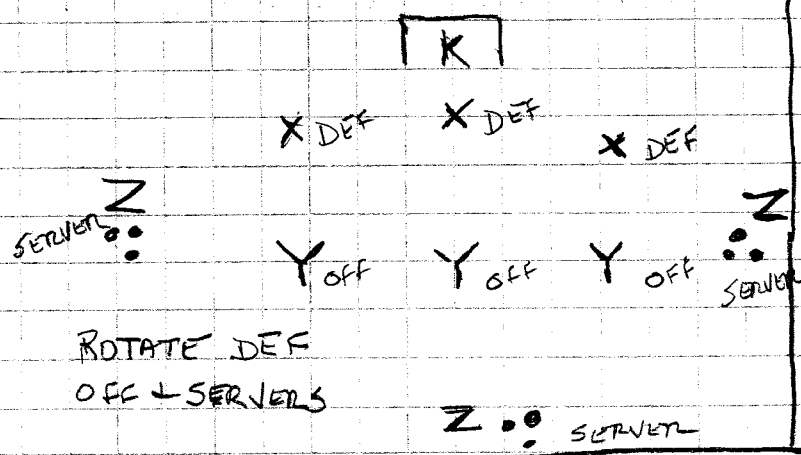 K
X DEF X DEF X DEF
Z Z
SERVER
Y OFF Y OFF Y OFF
SERVER
ROTATE DEF
OFF + SERVERS
Z SERVER